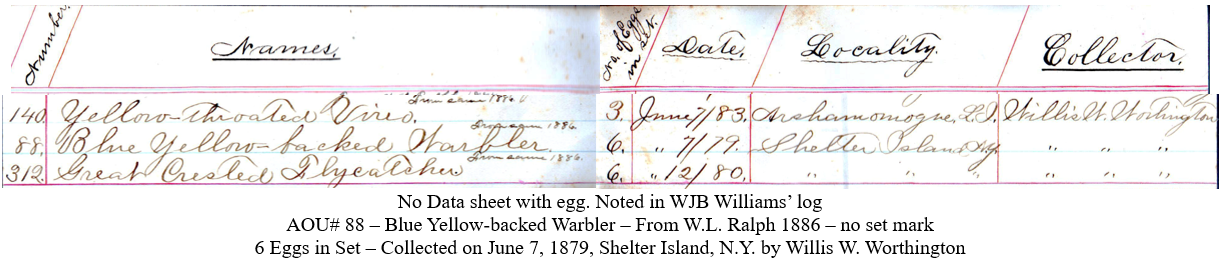 Number. Names. No. of Eggs in set. Date. Locality. Collector.
From same 1886.
140. Yellow-throated Vireo. 3. June 7/83. Arshamomogue, L.I. Willis W. Worthington
From same 1886.
88. Blue Yellow-backed Warbler. 6. " 7/79. Shelter Island, N.Y. " " "
From same 1886.
312. Great Crested Flycatcher. 6. " 12/80. " " " " " "
No Data sheet with egg. Noted in WJB Williams’ log
AOU# 88 – Blue Yellow-backed Warbler – From W.L. Ralph 1886 – no set mark
6 Eggs in Set – Collected on June 7, 1879, Shelter Island, N.Y. by Willis W. Worthington